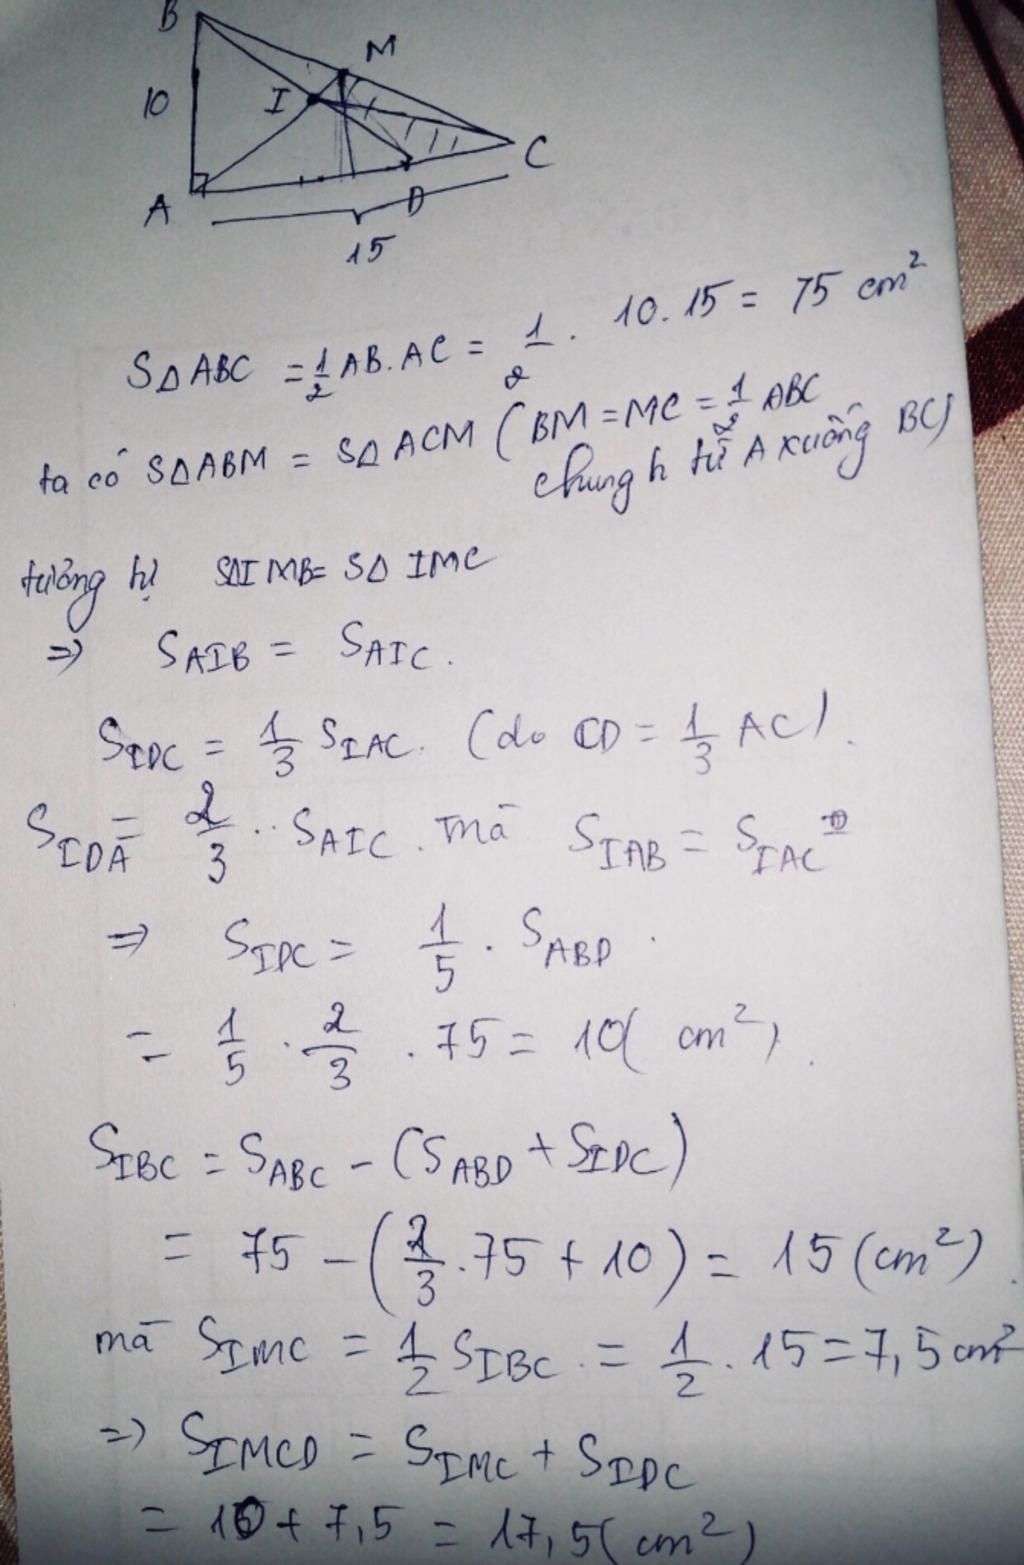 B
M
10
I
C
A
D
15
S∆ABC = 1/2 AB.AC = 1/2 . 10.15 = 75 cm²
ta có S∆ABM = S∆ACM (BM = MC = 1/2 ABC
chung h từ A xuống BC)
tương tự S∆IMB = S∆IMC
=> SAIB = SAIC.
SIDC = 1/3 SIAC. (do CD = 1/3 AC).
SIDA = 2/3 . SAIC. mà SIAB = SIAC
=> SIDC = 1/5 . SABD.
= 1/5 . 2/3 . 75 = 10( cm²).
SIBC = SABC - (SABD + SIDC)
= 75 - (2/3 .75 + 10) = 15 (cm²).
mà SIMC = 1/2 SIBC. = 1/2 . 15 = 7,5 cm²
=> SIMCD = SIMC + SIDC
= 10 + 7,5 = 17,5( cm²)